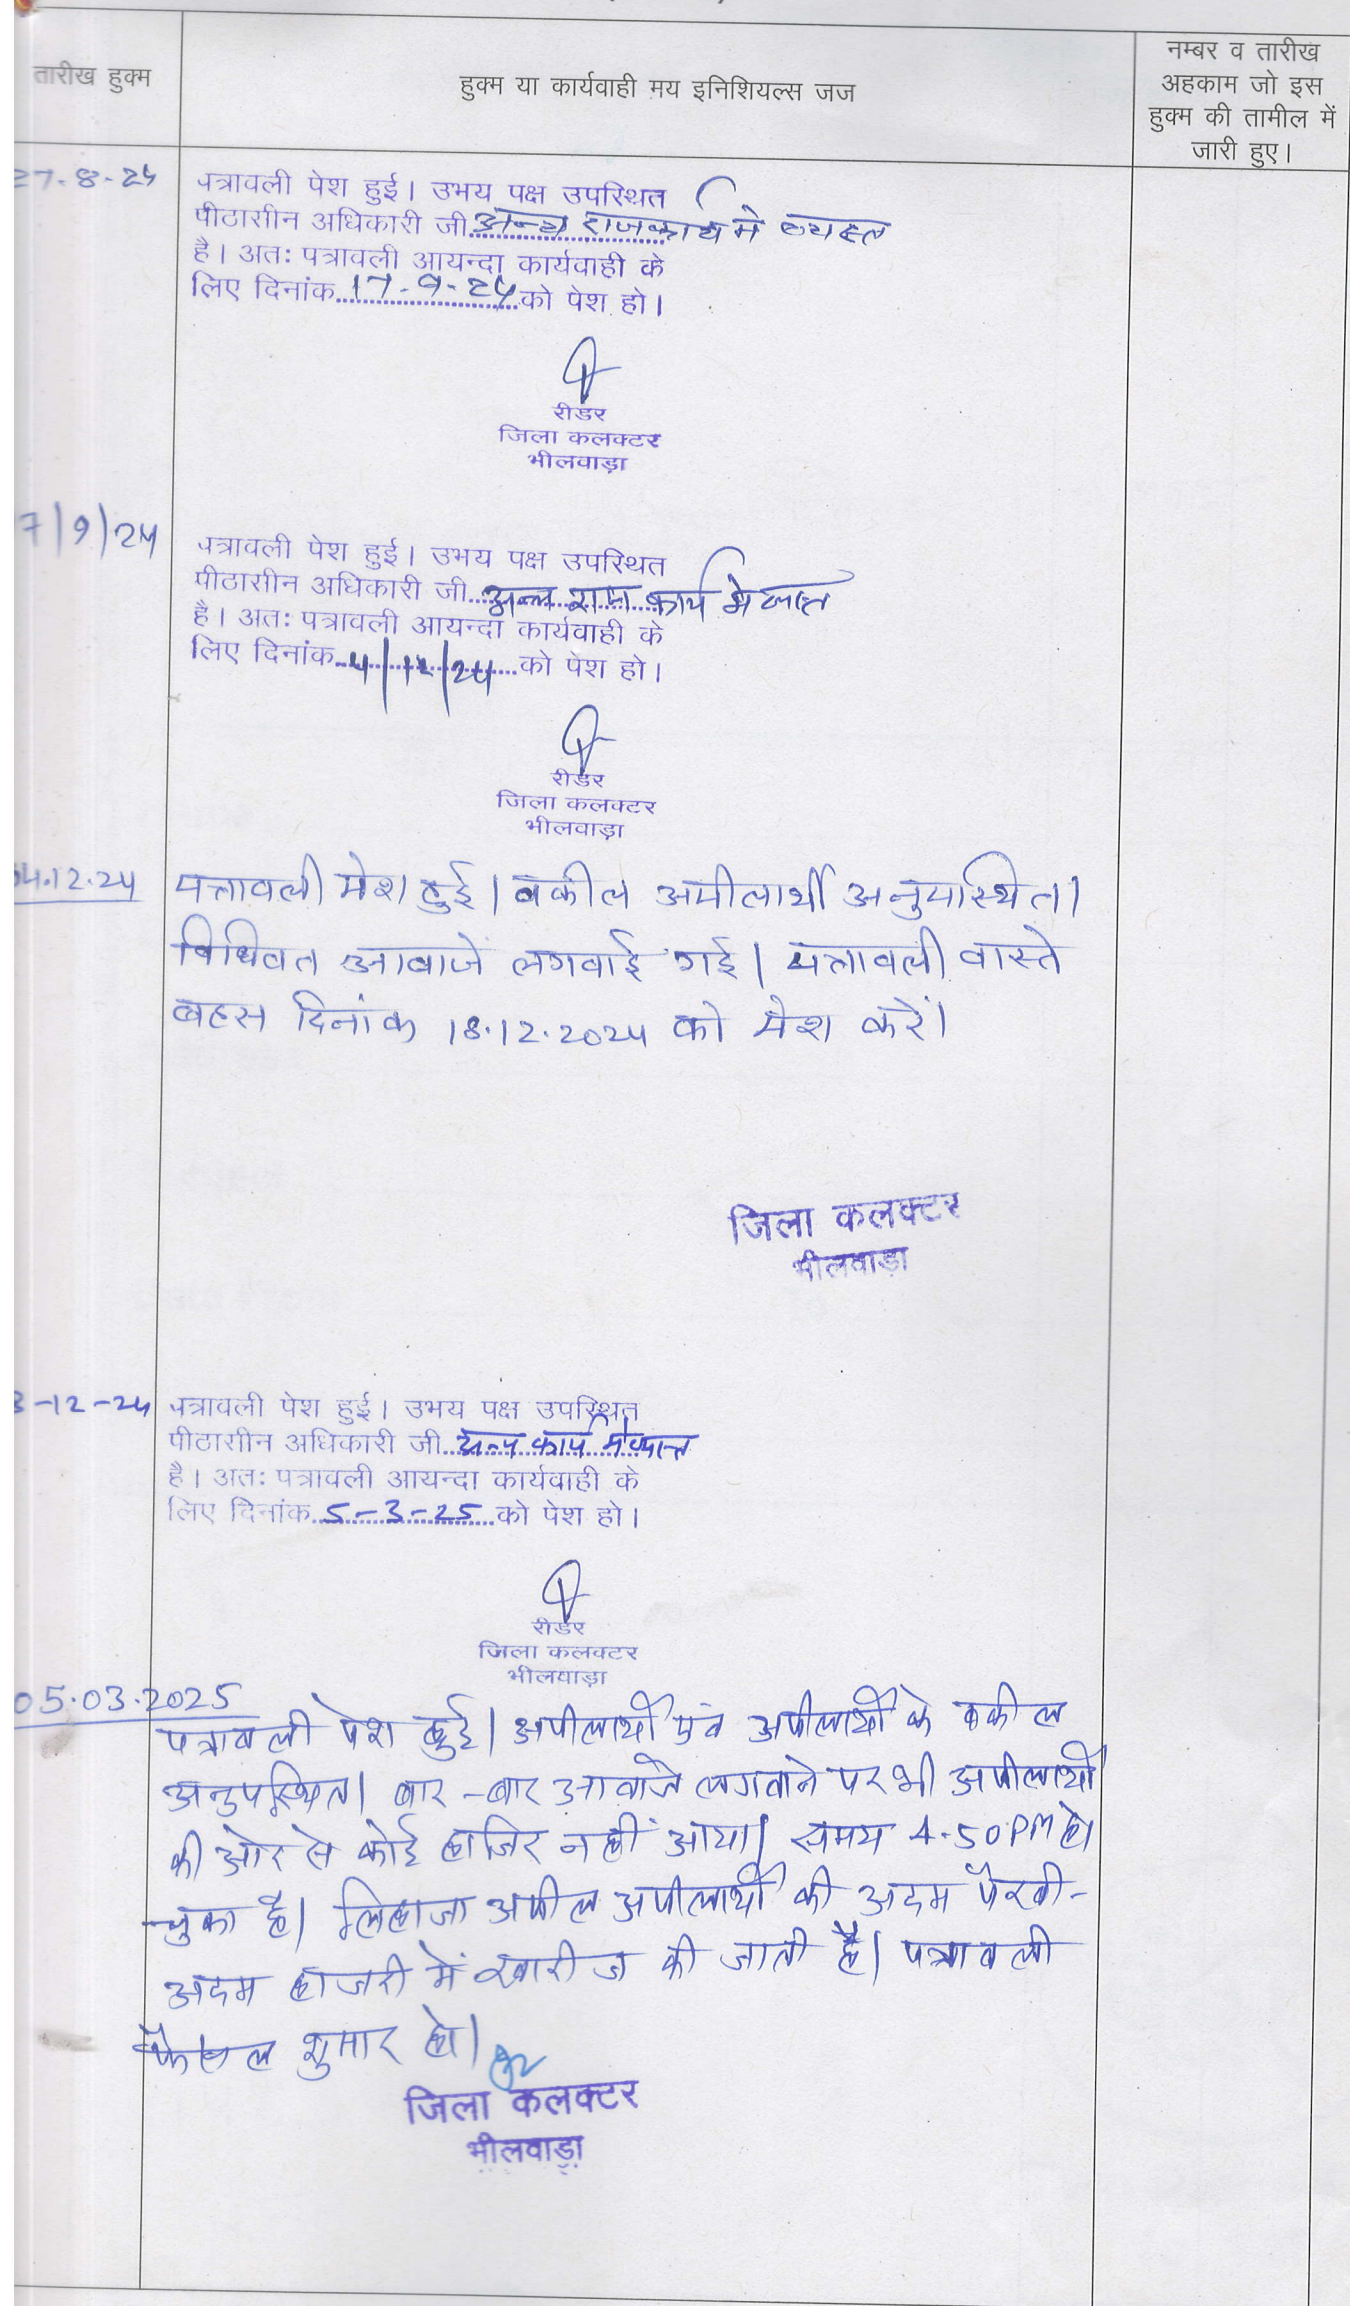 तारीख हुक्म
हुक्म या कार्यवाही मय इनिशियल्स जज
नम्बर व तारीख
अहकाम जो इस
हुक्म की तामील में
जारी हुए।
27-8-24
पत्रावली पेश हुई। उभय पक्ष उपस्थित
पीठासीन अधिकारी जी अन्य राजकार्य मे व्यस्त
है। अतः पत्रावली आयन्दा कार्यवाही के
लिए दिनांक 17-9-24 को पेश हो।
रीडर
जिला कलक्टर
भीलवाड़ा
7/9/24
पत्रावली पेश हुई। उभय पक्ष उपस्थित
पीठासीन अधिकारी जी अन्य राज कार्य मे व्यस्त
है। अतः पत्रावली आयन्दा कार्यवाही के
लिए दिनांक 4/12/24 को पेश हो।
रीडर
जिला कलक्टर
भीलवाड़ा
04.12.24
पत्रावली पेश हुई। वकील अपीलार्थी अनुपस्थित।
विधिवत आवाजे लगवाई गई। पत्रावली वास्ते
बहस दिनांक 18.12.2024 को पेश करें।
जिला कलक्टर
भीलवाड़ा
8-12-24
पत्रावली पेश हुई। उभय पक्ष उपस्थित
पीठासीन अधिकारी जी अन्य कार्य मे व्यस्त
है। अतः पत्रावली आयन्दा कार्यवाही के
लिए दिनांक 5-3-25 को पेश हो।
रीडर
जिला कलक्टर
भीलवाड़ा
05.03.2025
पत्रावली पेश हुई। अपीलार्थी एवं अपीलार्थी के वकील
अनुपस्थित। बार-बार आवाजे लगवाने पर भी अपीलार्थी
की ओर से कोई हाजिर नहीं आया। समय 4.50 PM हो
चुका है। लिहाजा अपील अपीलार्थी की अदम पैरवी-
अदम हाजरी में खारीज की जाती है। पत्रावली
फैसल शुमार हो।
जिला कलक्टर
भीलवाड़ा